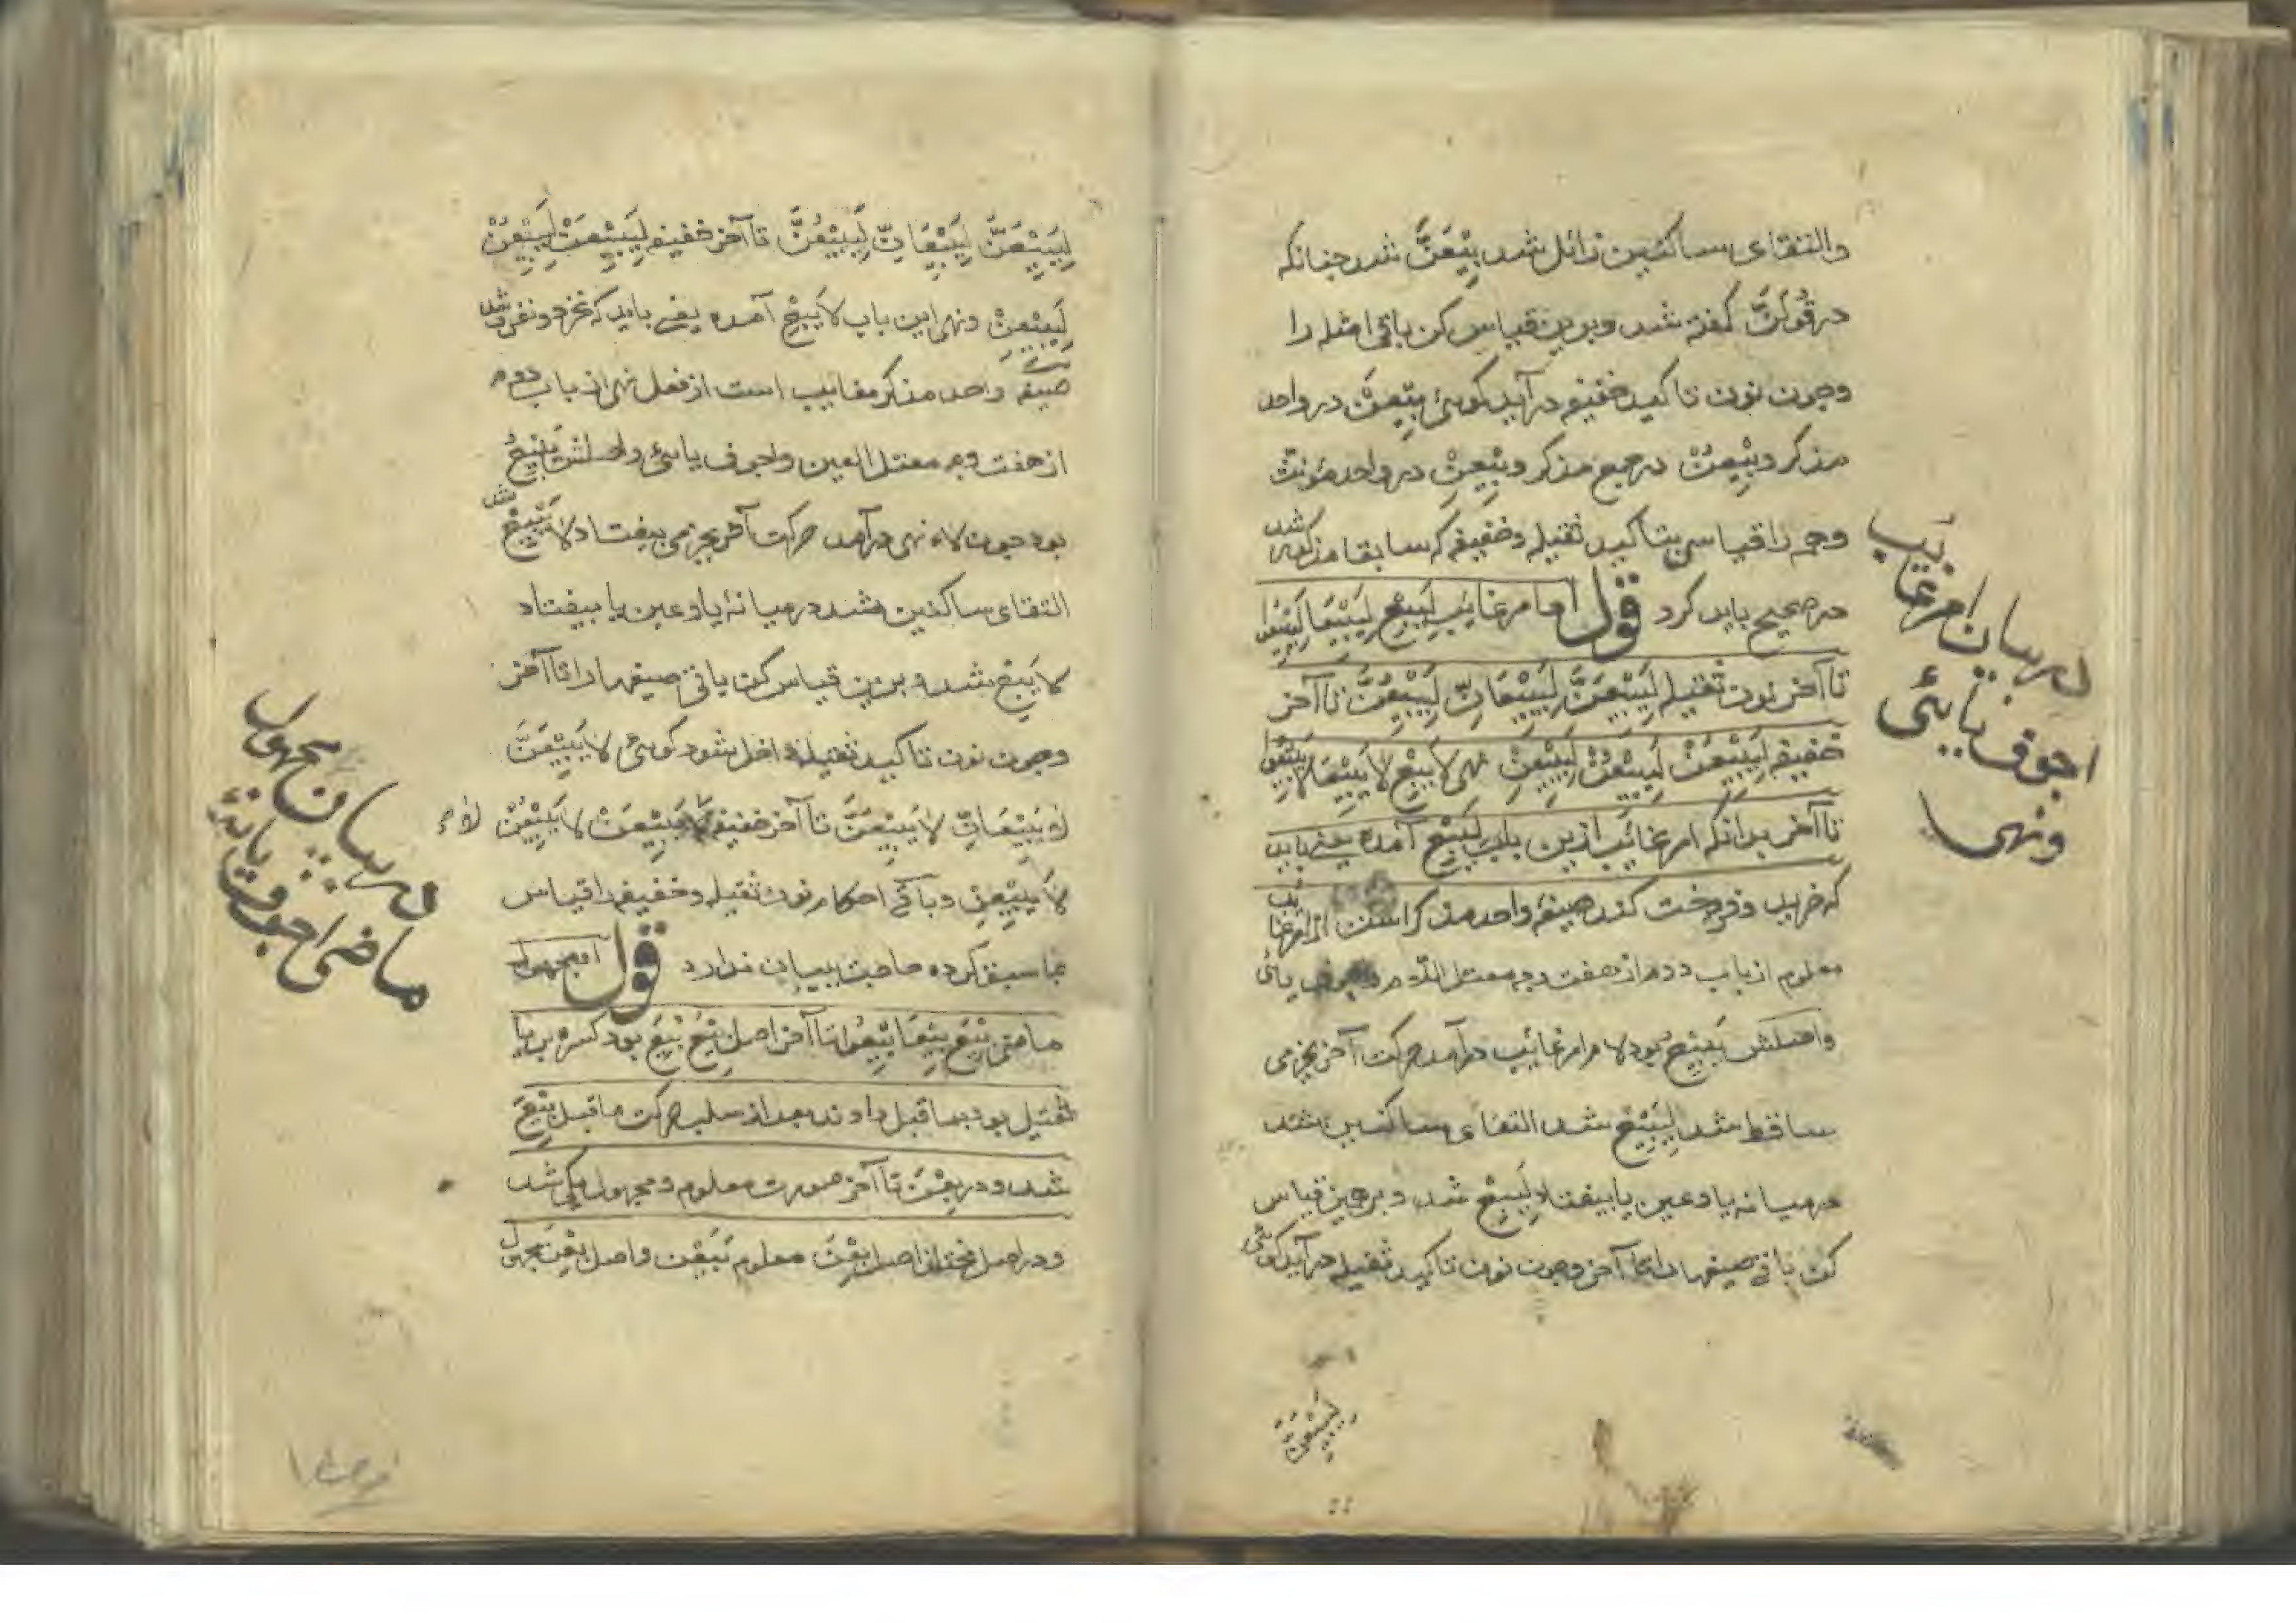 والتقای ساکنین زائل شد بِیْعَنَّ شد چنانکه
در قُوْلَنَّ گفته شد و برین قیاس کن باقی امثله را
وچون نون تاکید خفیفه در آید کوئی بِیْعَنْ در واحد
مذکر و بِیْعُنْ در جمع مذکر و بِیْعِنْ در واحد مؤنث
وجه را قیاس بتاکید ثقیله وخفیفه که سابقا مذکور شد
در صحیح باید کرد قول اما امر غائب لِیَبِعْ لِیَبِیْعَا لِیَبِیْعُوا
تا آخر نون ثقیله لِیَبِیْعَنَّ لِیَبِیْعَانِّ لِیَبِیْعُنَّ تا آخر
خفیفه لِیَبِیْعَنْ لِیَبِیْعُنْ لِیَبِیْعِنْ نهی لا یَبِعْ لا یَبِیْعَا لا یَبِیْعُوا
تا آخر بدانکه امر غائب ازین باب لِیَبِعْ آمده یعنے باید
که خرید وفروخت کند صیغه واحد مذکر است از امر غائب
معلوم از باب دوم از هفت وجه معتل اجوف یائی
واصلش یَبْیِعُ بود لام امر غائب در آمد حرکت آخر بجزمی
ساقط شد لِیَبِیْعْ شد التقای ساکنین شد
درمیانه یا وعین یا بیفتاد لِیَبِعْ شد وبرهمین قیاس
کن باقے صیغها را تا آخر وچون نون تاکید ثقیله در آید کوئی
در بیان امر غائب
اجوف یائی
ونهی
لِیَبِیْعَنَّ
لِیَبِیْعَنَّ لِیَبِیْعَانِّ لِیَبِیْعُنَّ تا آخر خفیفه لِیَبِیْعَنْ لِیَبِیْعُنْ
لِیَبِیْعِنْ ونهی این باب لا یَبِعْ آمده یعنے باید که نخرد ونفروشد
صیغه واحد مذکر مغایب است از فعل نهی از باب دوم
از هفت وجه معتل العین واجوف یائی واصلش یَبْیِعُ
بود چون لاء نهی در آمد حرکت آخر بجزمی بیفتاد لا یَبِیْعْ شد
التقای ساکنین شد درمیانهٔ یا وعین یا بیفتاد
لا یَبِعْ شد و برین قیاس کن باقی صیغها را تا آخر
وچون نون تاکید ثقیله داخل شود کوئی لا یَبِیْعَنَّ
لا یَبِیْعَانِّ لا یَبِیْعُنَّ تا آخر خفیفه لا یَبِیْعَنْ لا یَبِیْعُنْ
لا یَبِیْعِنْ وباقی احکام نون ثقیله وخفیفه را قیاس
بما سبق کرده حاجت ببیان ندارد قول اما مجهول
ماضی بِیْعَ بِیْعَا بِیْعُوا تا آخر اصل بِیْعَ بُیِعَ بود کسره بر یا
ثقیل بود بماقبل دادند بعد از سلب حرکت ماقبل بِیْعَ
شد ودر بِعْنَ تا آخر صورت معلوم ومجهول یکی شد
ودر اصل مختلف اصل بِعْنَ معلوم بَیَعْنَ واصل بِعْنَ مجهول
در بیان مجهول
ماضی اجوف یائی